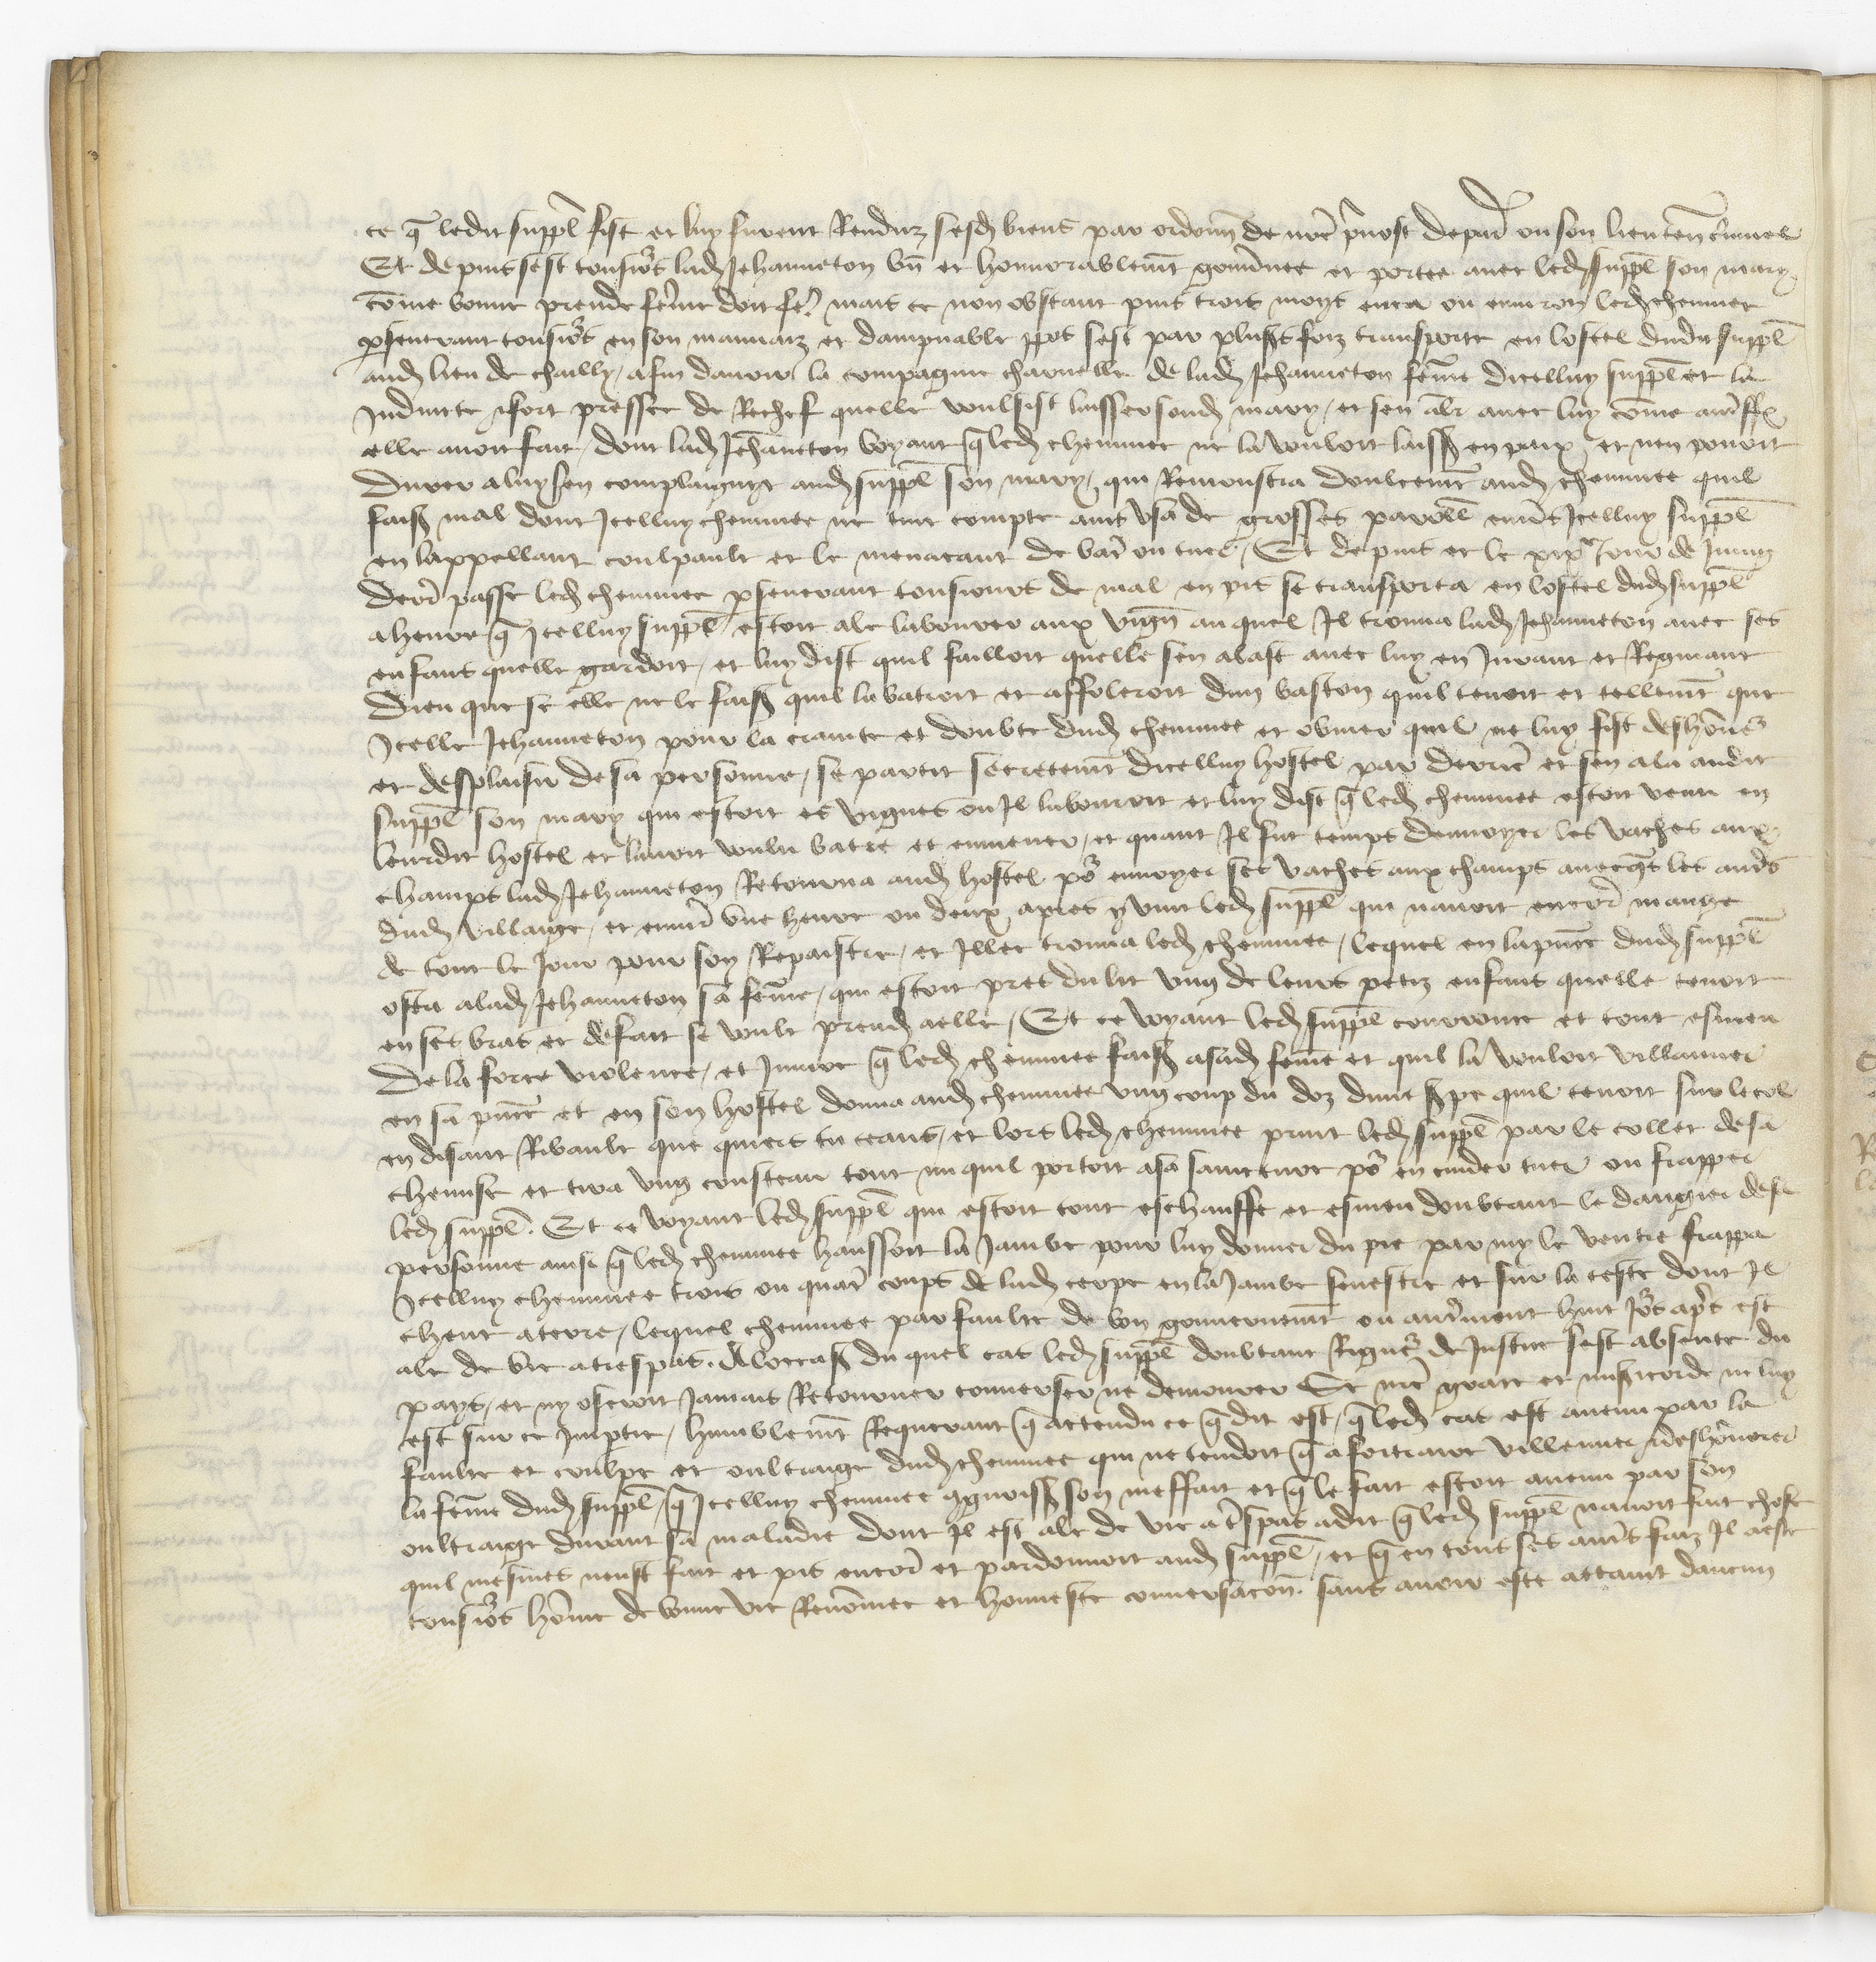 ce q̃ ledit suppl̃ fist et luy furent Renduz sesd biens par ordonn̄ de nre p̃uost depar ou son lieuten̄ c̃iminel
Et depuis sest tousio͛s lad Jehanneton bn̄ et honnorablem̃t gouu͛nee et portee auec led suppl̃ son mary
cōme bonne preude fem̄e doit fe͛ mais ce non obstant puis trois moys enca ou enuiron led cheminee
p͛seuerant tousio͛s en son mauuaiz et dampnable ppos sest par plus͛s foiz transporte en lostel dudit suppl̃
aud lieu de chailly / afin dauoir la compagnie charnelle de lad Jehanneton fem̄e dicelluy suppl̃ et la
Induicte ⁊ fort pressee de Rechef quelle voulsist laisser sond mary / et sen aler auec luy cōme aut͛ff
elle auoit fait / dont lad Jehanneton voyant q̃ led cheminee ne la vouloit laiss͛ en paix et nen pouoit
durer a luy sen complaigny aud suppl̃ son mary / qui Remonstra doulcem̃t aud cheminee quil
fais͛ mal dont Icelluy cheminee ne tint compte ains vsa de grosses paroll̃ enu͛s Icelluy suppl̃
en lappellant coulpault et le menacant de bat͛e ou tuer / Et depuis et le xixe Jour de Juing
derr̃ passe led cheminee p͛seuerant tousiours de mal en pis se transporta en lostel dud suppl̃
a heure q̃ Icelluy suppl̃ estoit ale labourer aux vign̄ auquel Il trouua lad Jehanneton auec ses
enfans quelle gardoit / et luy dist quil failloit quelle sen alast auec luy en Jurant et Regniant
dieu que se elle ne le fais͛ quil la batroit et affoleroit dun baston quil tenoit et tellem̃t que
Icelle Jehanneton pour la crainte et doubte dud cheminee et obuier quil ne luy fist deshōneur
et desplaisir de sa personne / se partit secretem̃t dicelluy hostel par derrier̃ et sen ala audit
suppl̃ son mary qui estoit es vignes ou Il labouroit et luy dist q̃ led cheminee estoit venu en
leurdit hostel et lauoit voulu batre et enmener / et quant Il fut temps denuoyer les vaches aux
champs lad Jehanneton Retourna aud hostel po͛ enuoyer ses vaches aux champs auecq̃s les aut͛s
dud villaige / et enuir̃ vne heure ou deux apres y vint led suppl̃ qui nauoit encor̃ mange
de tout le Jour pour soy Repaistre / et Illec trouua led cheminee / lequel en la pn̄ce dud suppl̃
osta a lad Jehanneton sa fem̄e / qui estoit pres du lit vng de leurs petiz enfans quelle tenoit
en ses bras et de fait se voult prend͛ a elle / Et ce voyant led suppl̃ courrouce et tout esmeu
de la force violence / et Iniure q̃ led cheminee fais͛ a sad fem̄e et quil la vouloit villanner
en sa pn̄ce et en son hostel donna aud cheminee vng coup du doz dune s͛pe quil tenoit sur le col
en disant Ribault que quiers tu ceans / et lors led cheminee print led suppl̃ par le collet de sa
chemise et tira vng cousteau tout nu quil portoit a sa saincture po͛ en cuider tuer ou frapper
led suppl̃. Et ce voyant led suppl̃ qui estoit tout eschauffe et esmeu doubtant le dangier de sa
personne ainsi q̃ led cheminee haulsoit la Jambe pour luy donner du pie par my le ventre frappa
Icelluy cheminee trois ou quat͛ coups de lad cerpe en la Jambe senestre et sur la teste dont Il
cheut a terre / lequel cheminee par faulte de bon gouuernem̃t ou aut͛ment huit Jo͛s apr̃s est
ale de vie a trespas. A loccas͛ du quel cas led suppl̃ doubtant Rigue͛ de Justice sest absente du
pays / et ny oseroit Jamais Retourner conuerser ne demourer Se nre grace et mis͛icorde ne luy
est sur ce Impartie / humblem̃t Requerant q̃ attendu ce q̃ dit est / q̃ led cas est auenu par la
faulte et coulpe et oultraige dud cheminee qui ne tendoit q̃ a fortraire villenner ⁊ deshōnorer
la fem̄e dud suppl̃ / q̃ Icelluy cheminee ꝯgnoiss͛ son meffait et q̃ le fait estoit auenu par son
oultraige durant sa maladie dont Il est ale de vie a t͛spas a dit q̃ led suppl̃ nauoit fait chose
quil mesmes neust fait et pis encor̃ et pardonnoit aud suppl̃ / et q̃ en tous ses aut͛s faiz Il a este
tousio͛s hōme de bonne vie Renōmee et honneste conuersacōn. sans auoir este attaint daucun